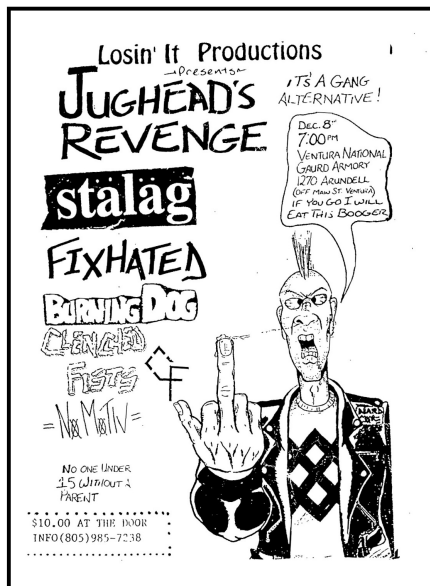 Losin' It Productions
Presents
JUGHEAD'S
REVENGE
iT's A GANG
ALTERNATIVE!
DEC. 8TH
7:00 PM
VENTURA NATIONAL
GAURD ARMORY
1270 ARUNDELL
(OFF MAIN ST. VENTURA)
IF YOU GO I WILL
EAT THIS BOOGER
stäläg
FIXHATED
BURNING DOG
CLENCHED
FISTS
CF
=NØ MØTIV=
NARD
CORE
NO ONE UNDER
15 WITHOUT A
PARENT
$10.00 AT THE DOOR
INFO(805)985-7238